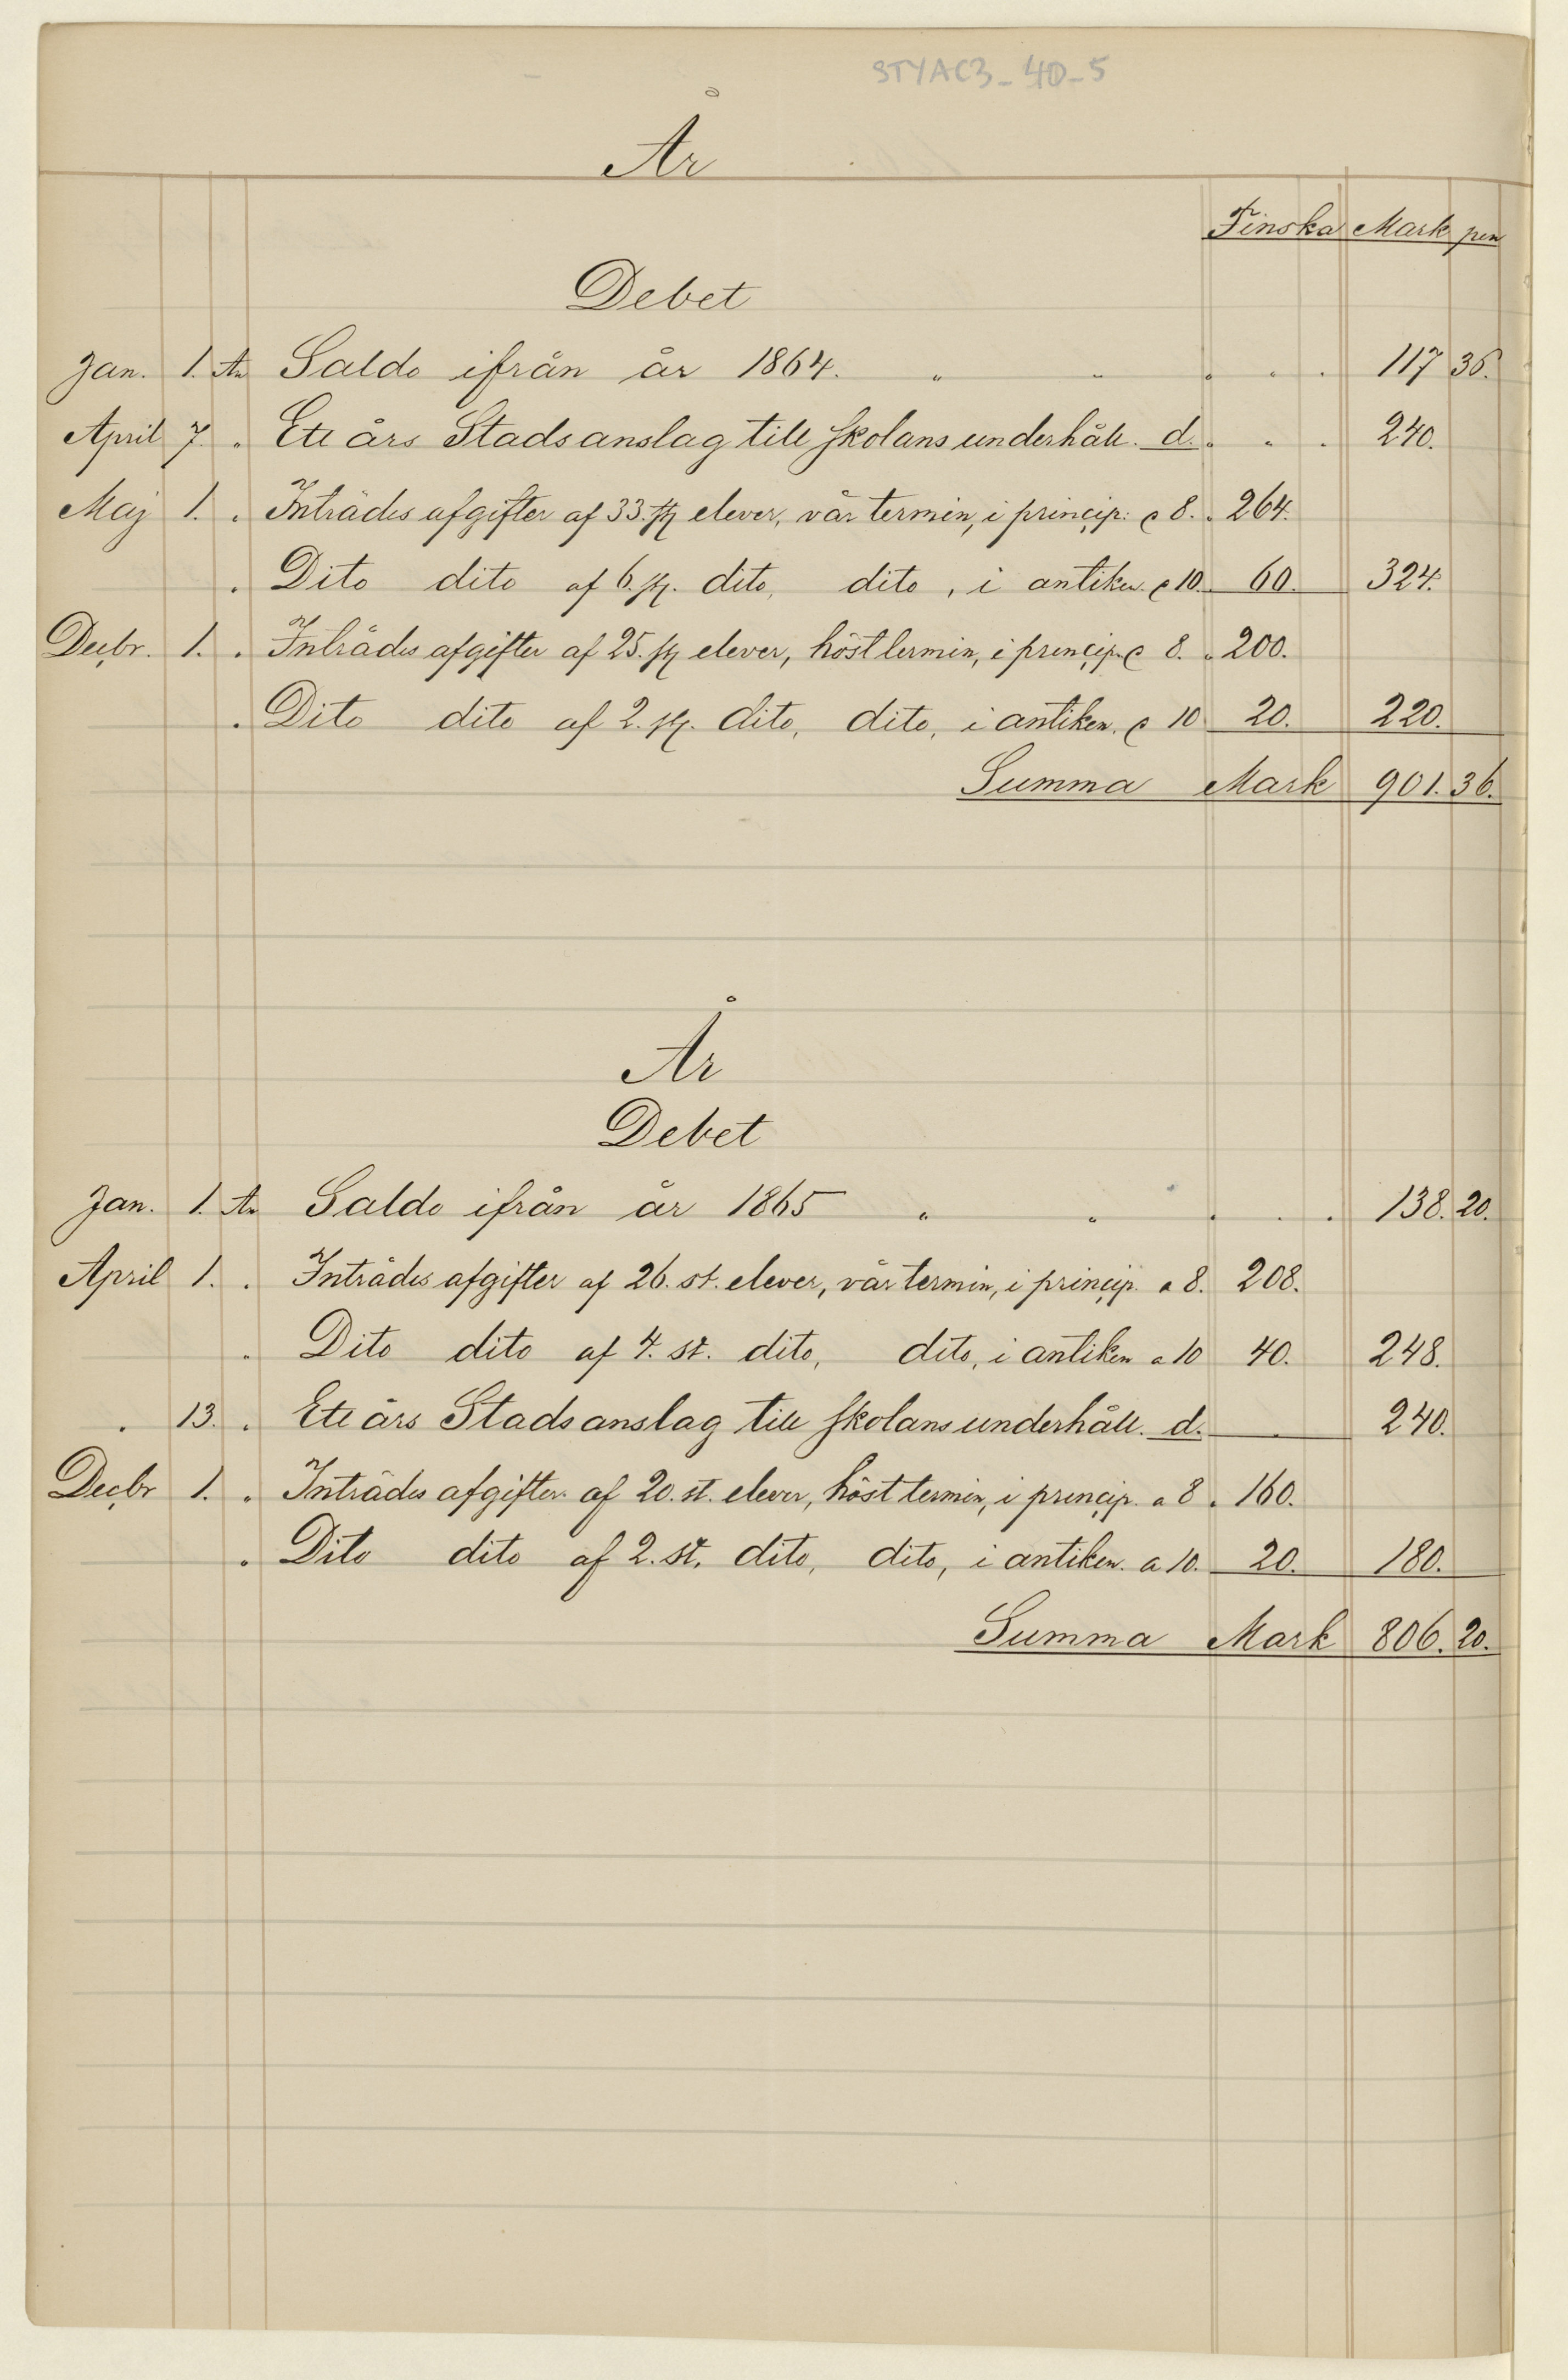 STYAC3_40_5
År
Finska Mark pen
Debet
Jan. 1. An Saldo ifrån år 1864. " " " . . 117 36.
April 7. " Ett års Stadsanslag till skolans underhåll. d. " . 240.
Maj 1. " Inträdes afgifter af 33. st elever, vår termin, i princip: a 8. " 264.
" Dito dito af 6. st. dito, dito, i antiken. a 10. 60. 324.
Decbr. 1. " Inträdes afgifter af 25. st elever, höst termin, i princip. a 8. " 200.
" Dito dito af 2. st. dito, dito, i antiken. a 10 20. 220.
Summa Mark 901. 36.
År
Debet
Jan. 1. An Saldo ifrån år 1865 " " . . . 138. 20.
April 1. " Inträdes afgifter af 26. st. elever, vår termin, i princip. a 8. 208.
" Dito dito af 4. st. dito, dito, i antiken a 10 40. 248.
" 13. " Ett års Stadsanslag till skolans underhåll. d. 240.
Decbr 1. " Inträdes afgifter af 20. st. elever, höst termin, i princip. a 8 " 160.
" Dito dito af 2. st. dito, dito, i antiken. a 10. 20. 180.
Summa Mark 806. 20.